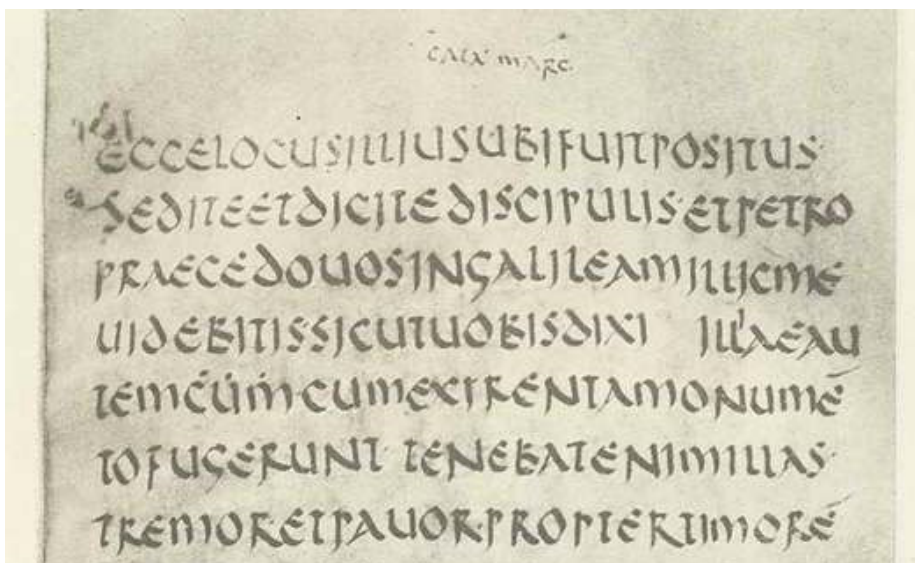 CATA MARC.
ECCELOCUSILLIUSUBIFUITPOSITUS·
SEDITEETDICITEDISCIPULIS·ETPETRO
PRAECEDOUOSINGALILEAMILLICME
UIDEBITISSICUTUOBISDIXI ILLAEAU
TEMCUMCUMEXIRENTAMONUMĒ
TOFUGERUNT TENEBATENIMILLAS·
TREMORETPAUOR·PROPTERTIMORĒ